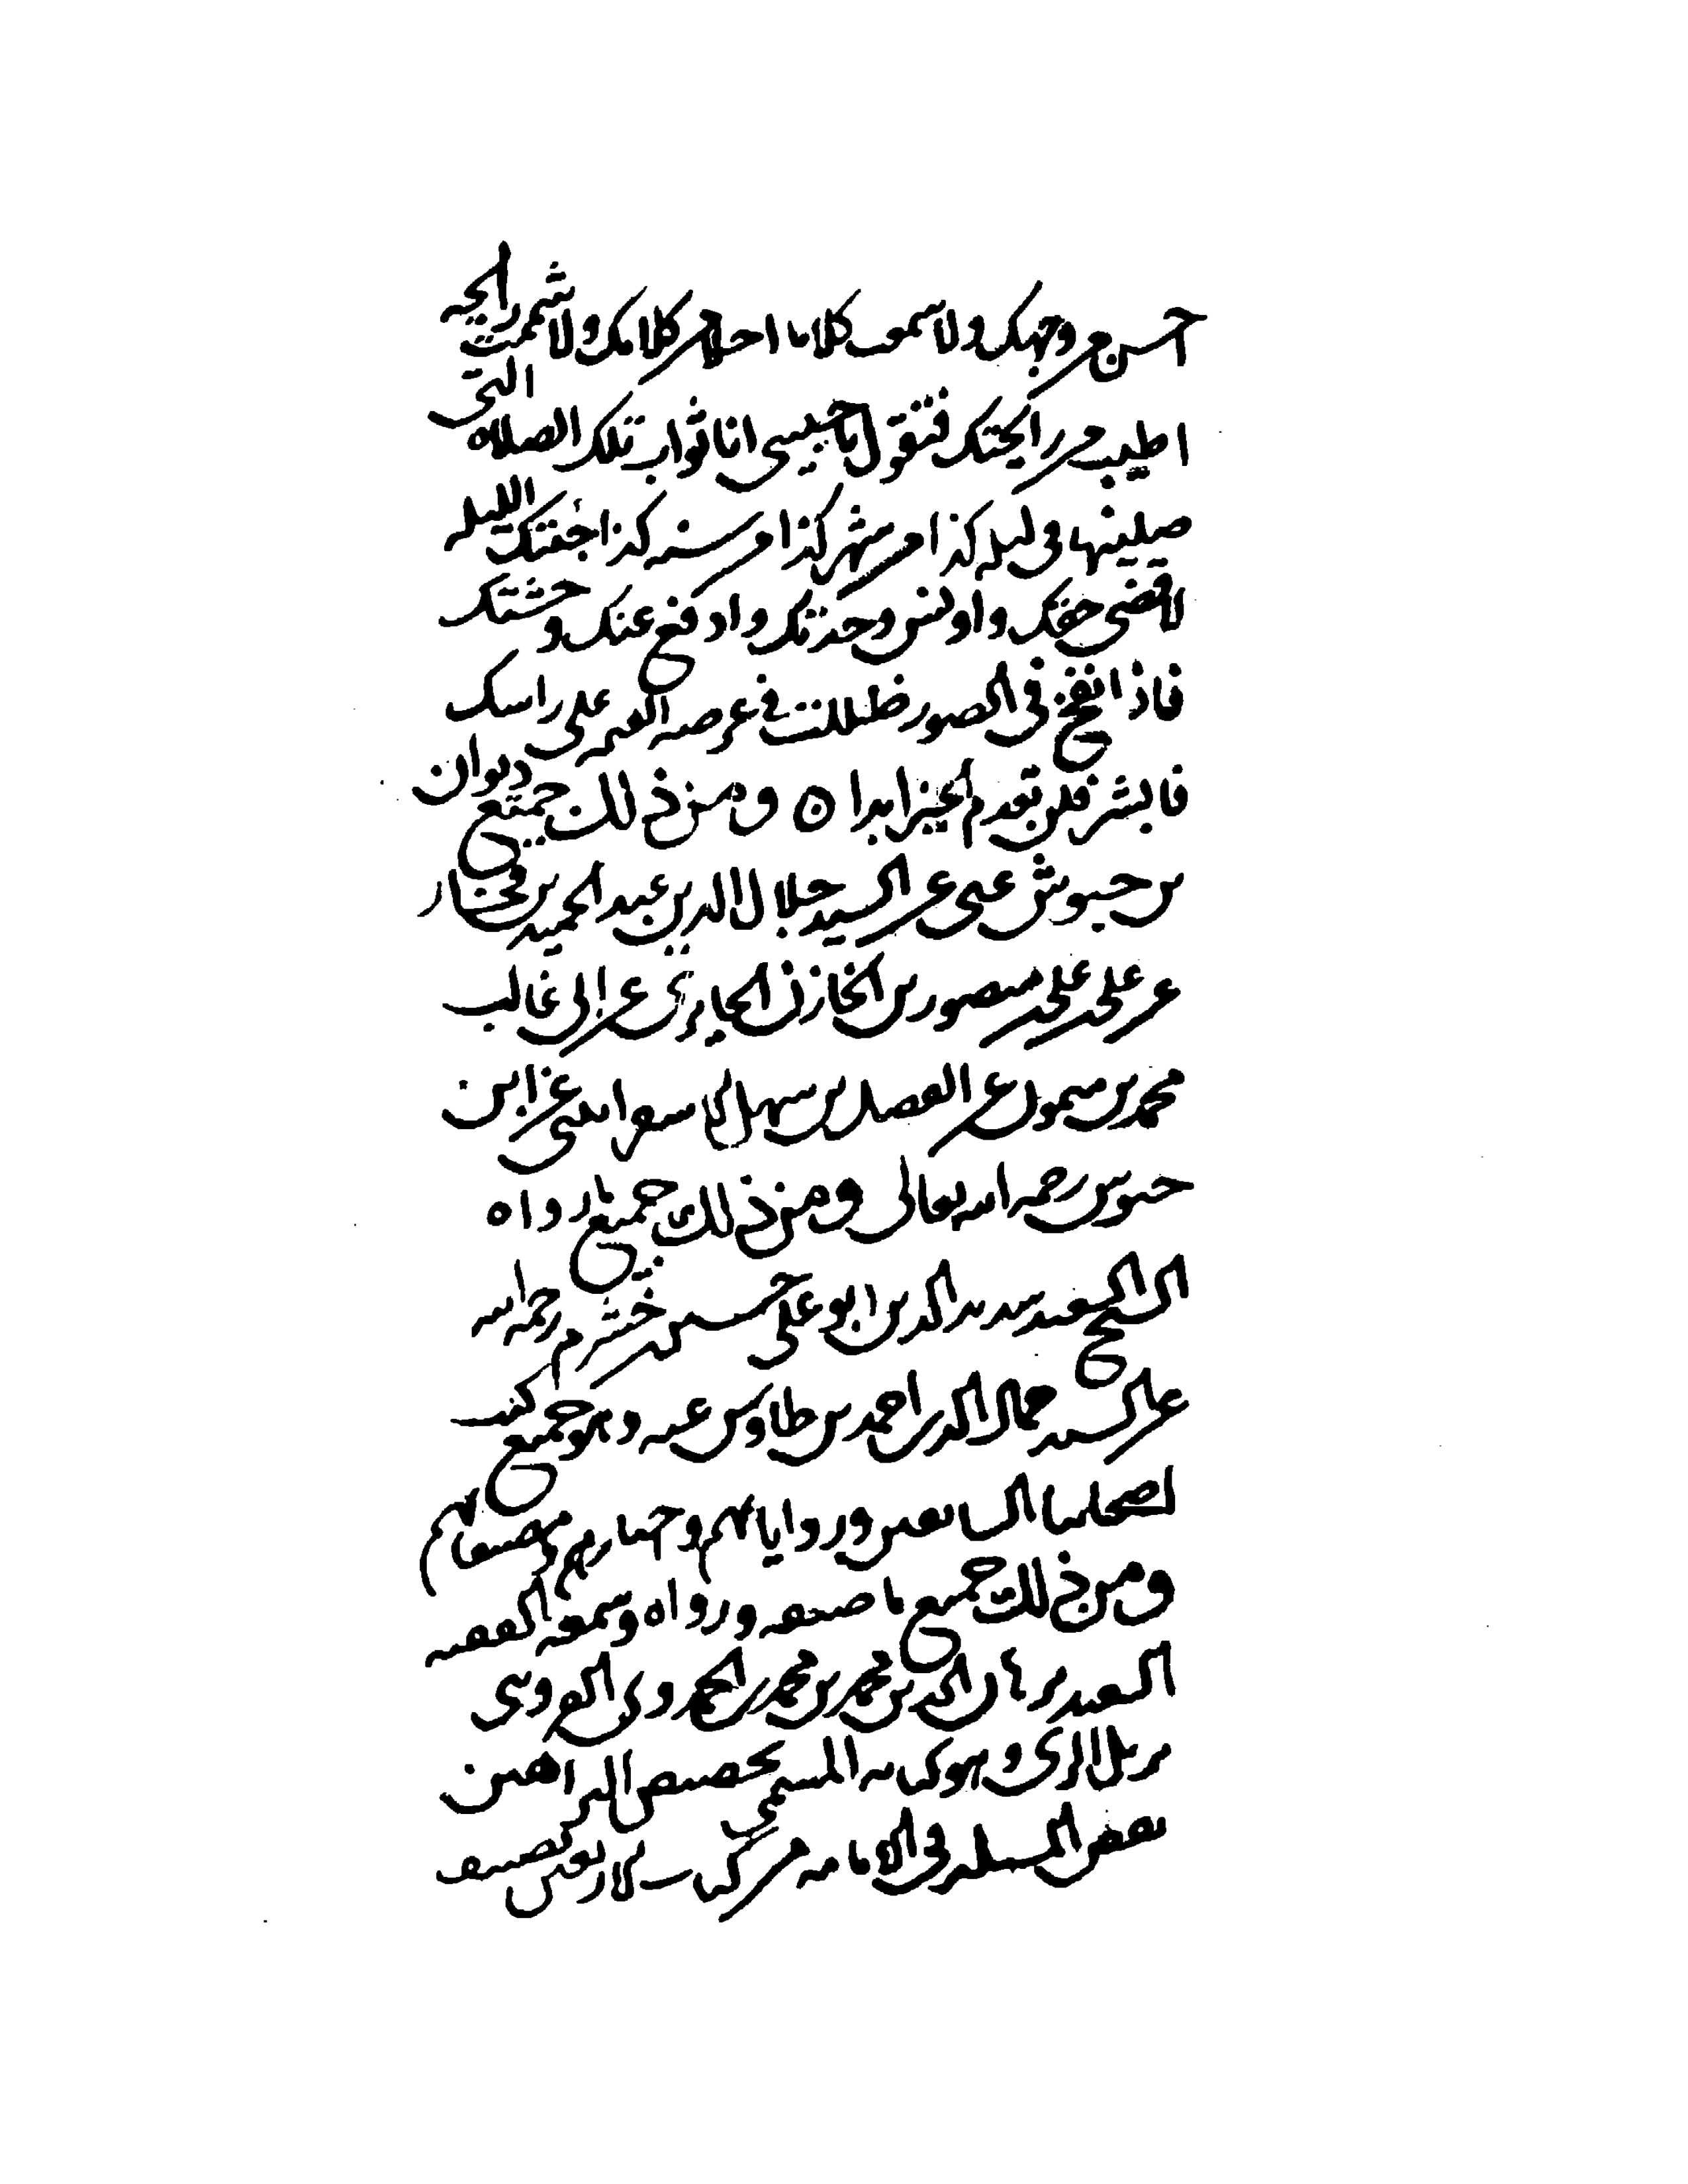 احسن من وجهك ولا سمعت كلاما احلى من كلامك ولا شممت رايحه
اطيب من رايحتك فتقول يا حبيبى انا ثواب تلك الصلاه التى
صليتها فى ليله كذا من شهر كذا من سنه كذا جئتك الليله
لاقضى حقك واونس وحدتك وادفع عنك وحشتك
فاذا نفخ فى الصور ظللت فى عرصه القيمه على راسك
فابشر فلن تعدم الخير ابدا ه ومن ذلك جميع ديوان
بن حبوش عنى عن السيد جلال الدين عبد الحميد بن فخار
عن على على منصور بن الخازن الحايرى عن ابى غالب
محمد بن سهل الاسفراينى عن ابن
حيوس رحمه الله تعالى ومن ذلك جميع ما رواه
الشيخ السعيد سديد الدين ابو على حسين خشرم رحمه الله
عن السيد جمال الدين احمد بن طاوس عنه وهو جميع كتب
اصحابنا السابقين ورواياتهم واجازاتهم ومصنفاتهم
ومن ذلك جميع ما صنفه ورواه وسمعه الفقيه
السعيد برهان الدين محمد بن محمد الحمدانى القزوينى
نزيل الرى وهو كتابه المسمى تخصيص البراهين
نقض المسله فى الامامه من كتاب الاربعين تصنيف